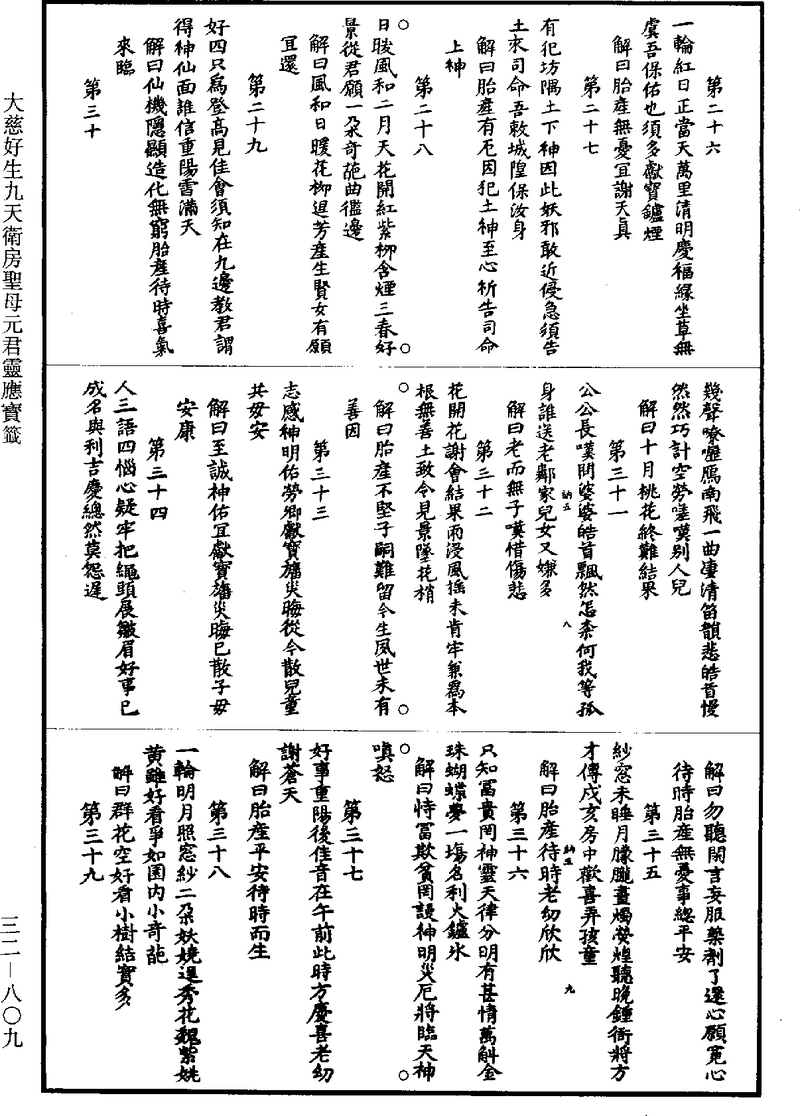 大慈好生九天衛房聖母元君靈應寶籤
三二—八〇九
第二十六
一輪紅日正當天萬里清明慶福緣坐草無
虞吾保佑也須多獻寶鑪煙
解曰胎產無憂宜謝天真
第二十七
有犯坊隅土下神因此妖邪敢近侵急須告
土求司命吾敕城隍保汝身
解曰胎產有厄因犯土神至心祈告司命
上神
第二十八
日暖風和二月天花開紅紫柳含煙三春好
景從君願一朵奇葩曲檻邊
解曰風和日暖花柳逞芳產生賢女有願
宜還
第二十九
好四只為登高見佳會須知在九邊教君謂
得神仙面誰信重陽雪滿天
解曰仙機隱顯造化無窮胎產待時喜氣
來臨
第三十
幾聲嘹嚦鴈南飛一曲凄清笛韻悲皓首慢
然然巧計空勞嗟嘆別人兒
解曰十月桃花終難結果
第三十一
公公長嘆問婆婆皓首飄然怎柰何我等孤
身誰送老鄰家兒女又嫌多
解曰老而無子嘆惜傷悲
第三十二
花開花謝會結果雨浸風搖未肯牢兼爲本
根無善土致令見景墜花梢
解曰胎產不堅子嗣難留今生夙世未有
善因
第三十三
志感神明佑勞卿獻寶旛災晦從今散兒童
共母安
解曰至誠神佑宜獻寶旛災晦已散子母
安康
第三十四
人三語四惱心疑牢把繩頭展皺眉好事已
成名與利吉慶總然莫怨遲
解曰勿聽閑言妄服藥劑了還心願寬心
待時胎產無憂事總平安
第三十五
紗窓未睡月朦朧畫燭熒煌聽晚鍾衙將方
才傳戌亥房中歡喜弄孩童
解曰胎產待時老幼欣欣
第三十六
只知冨貴罔神靈天律分明有甚情萬斛金
珠蝴蝶夢一塲名利火鑪冰
解曰恃冨欺貧罔謾神明災厄將臨天神
嗔怒
第三十七
好事重陽後佳音在午前此時方慶喜老幼
謝蒼天
解曰胎產平安待時而生
第三十八
一輪明月照窓紗二朵妖嬈逞秀花魏紫姚
黃雖好看爭如園內小奇葩
解曰群花空好看小樹結實多
第三十九
納五
八
納五
九